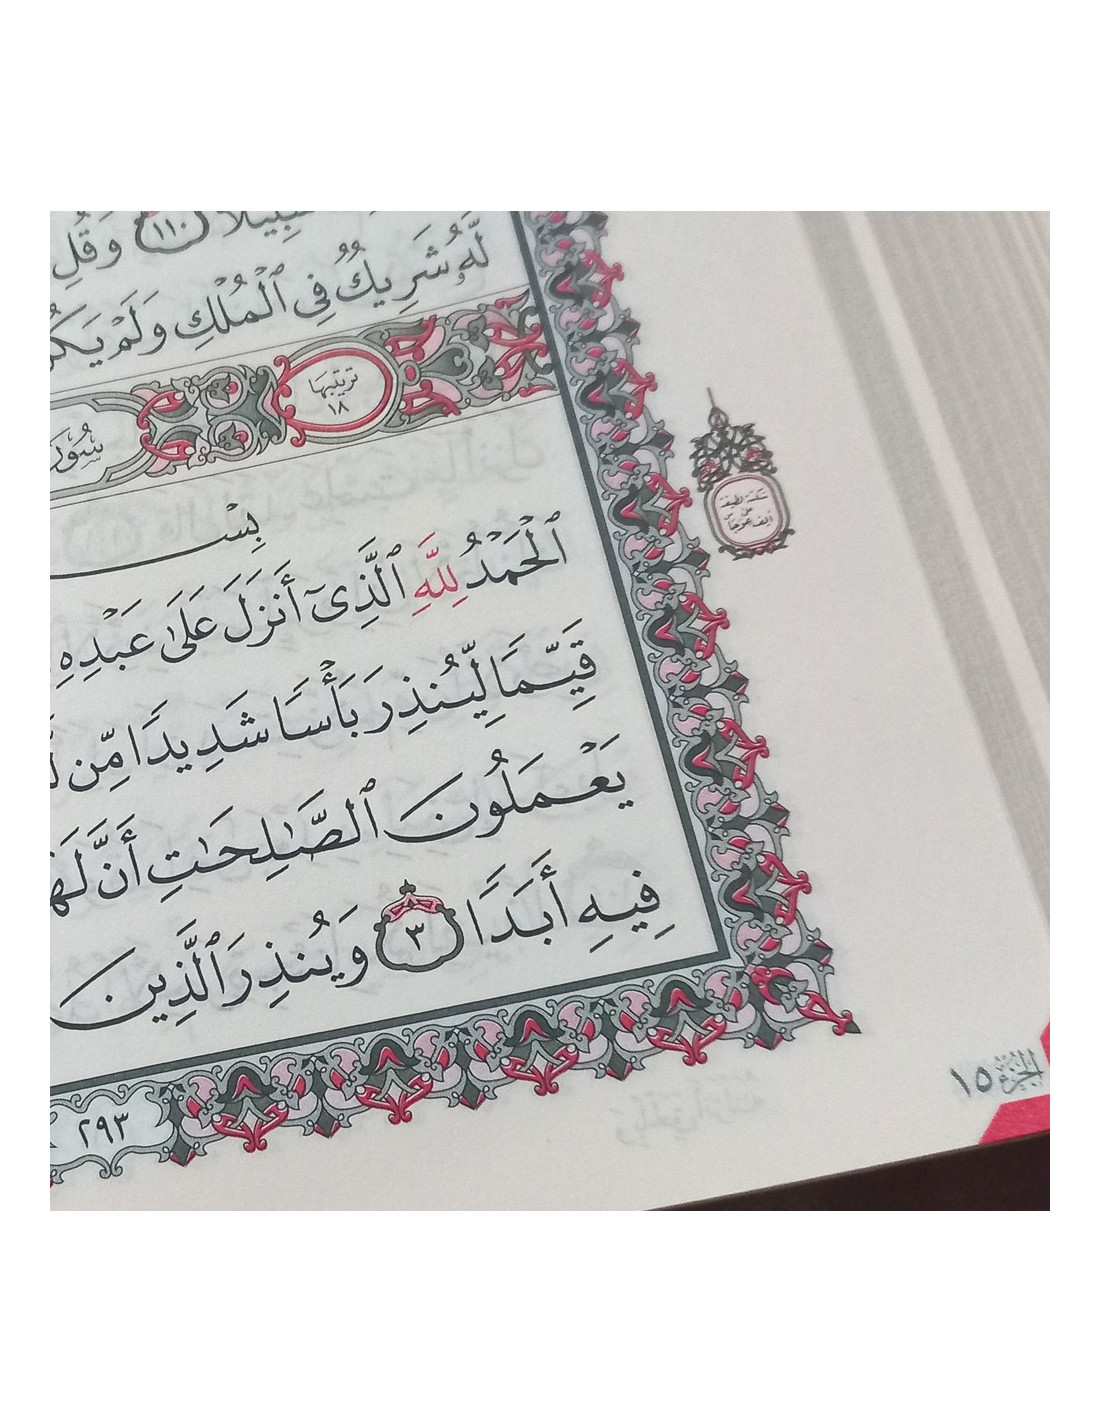 سَبِيلًا ١١٠ وَقُلِ
لَّهُۥ شَرِيكٌ فِي ٱلْمُلْكِ وَلَمْ يَكُن
ترتيبها
١٨
سُورَة
بِسْـ
ٱلْحَمْدُ لِلَّهِ ٱلَّذِىٓ أَنزَلَ عَلَىٰ عَبْدِهِ
قَيِّمًا لِّيُنذِرَ بَأْسًا شَدِيدًا مِّن
يَعْمَلُونَ ٱلصَّٰلِحَٰتِ أَنَّ لَهُ
فِيهِ أَبَدًا ٣ وَيُنذِرَ ٱلَّذِينَ
سكتة لطيفة
على
ألف عوجا
٢٩٣
الجزء ١٥